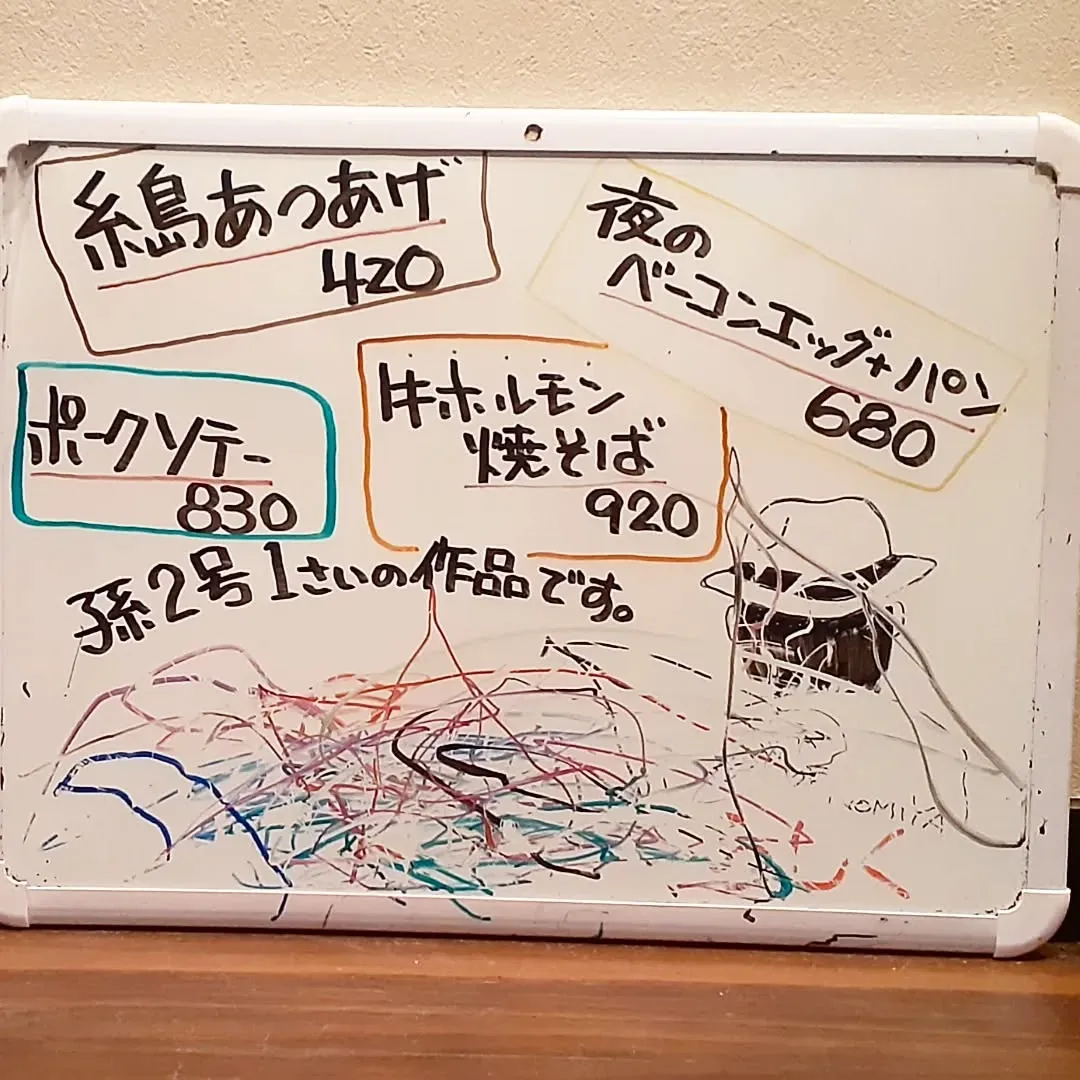 糸島あつあげ
420
夜の
ベーコンエッグ+パン
680
ポークソテー
830
牛ホルモン
焼そば
920
孫2号1さいの作品です。